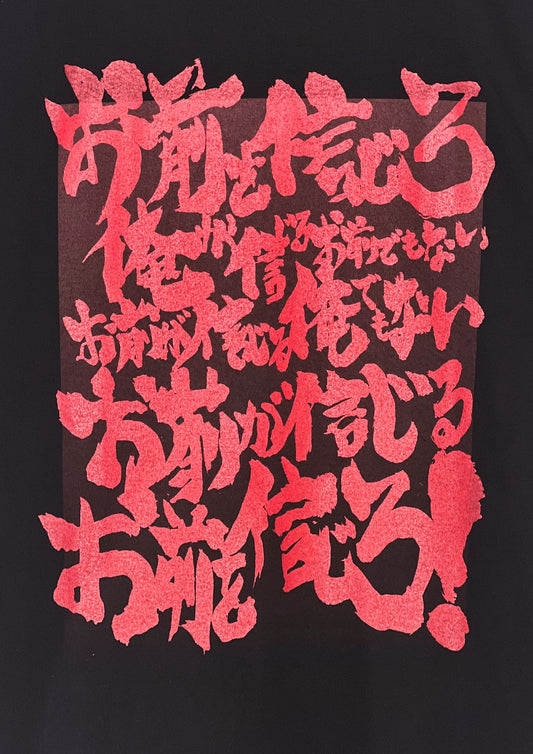 お前を信じろ
俺が信じるお前でもない
お前が信じる俺でもない
お前が信じる
お前を信じろ!